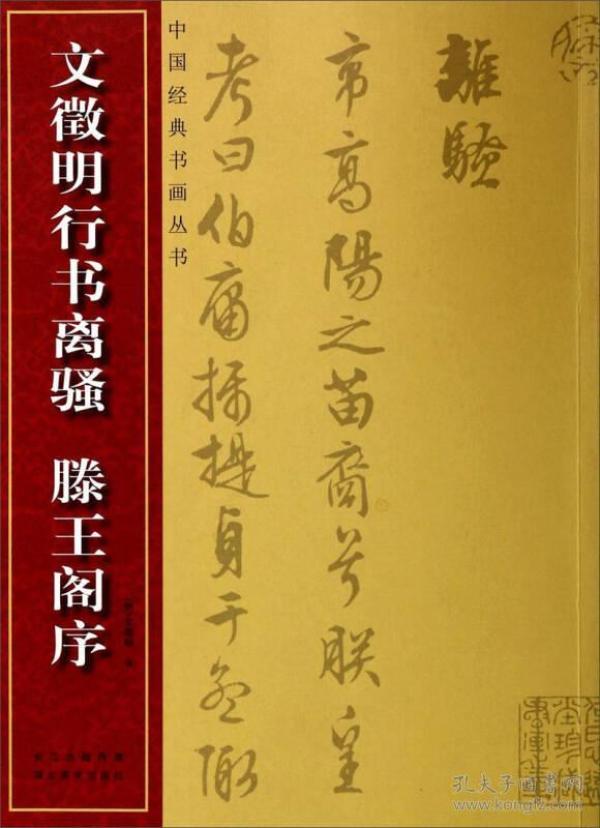 文徵明行书离骚 滕王阁序
中国经典书画丛书
離騷
帝高陽之苗裔兮朕皇
考曰伯庸攝提貞于孟陬
孔夫子旧书网
www.kongfz.com